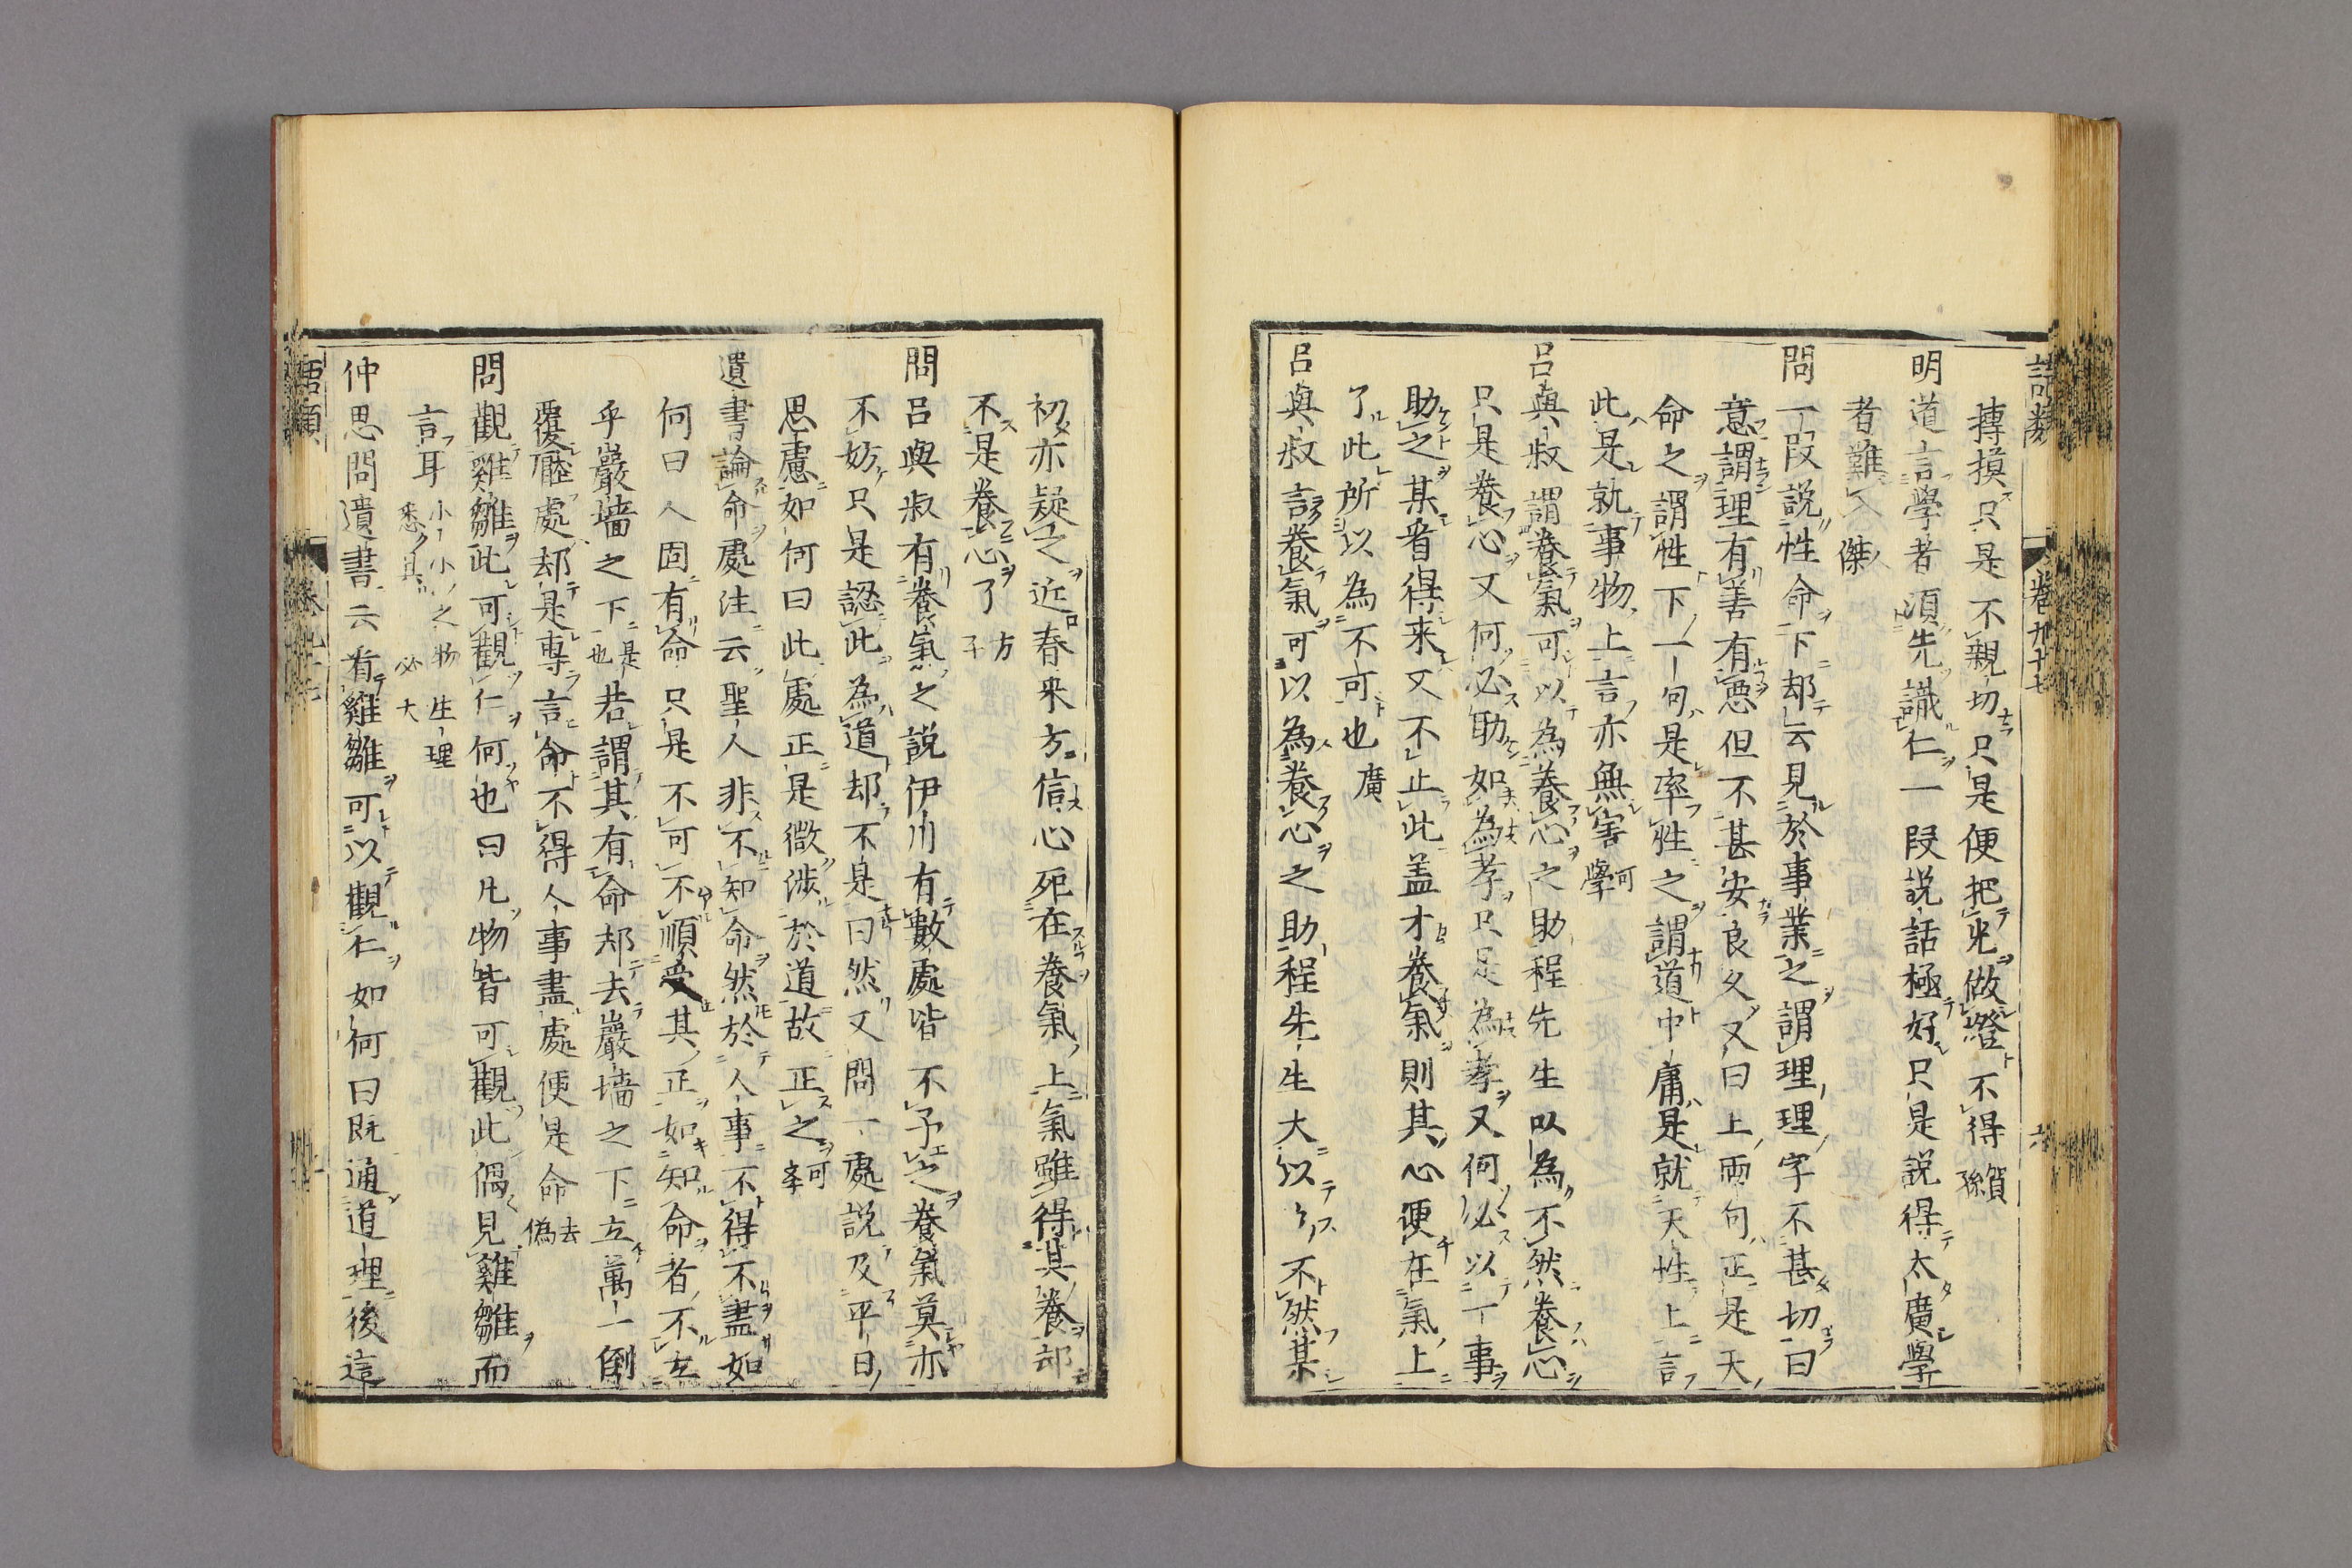 語類 卷九十七 六
摶摸只是不親切只是便把光做燈不得賀孫
明道言學者須先識仁一段說話極好只是說得太廣學
者難入傑
問一段說性命下却云見於事業之謂理理字不甚切曰
意謂理有善有惡但不甚安良久又曰上兩句正是天
命之謂性下一句是率性之謂道中庸是就天性上言
此是就事物上言亦無害可學
呂與叔謂養氣可以為養心之助程先生以為不然養心
只是養心又何必助如為孝只是為孝又何必以一事
助之某看得来又不止此盖才養氣則其心便在氣上
了此所以為不可也廣
呂與叔言養氣可以為養心之助程先生大以為不然某
初亦疑之近春来方信心死在養氣上氣雖得其養却
不是養心了方子
問呂與叔有養氣之說伊川有數處皆不予之養氣莫亦
不妨只是認此為道却不是曰然又問一處說及平日
思慮如何曰此處正是微涉於道故正之可學
遺書論命處注云聖人非不知命然於人事不得不盡如
何曰人固有命只是不可不順受其正如知命者不立
乎巖墻之下是也若謂其有命却去巖墻之下立萬一倒
覆壓處却是專言命不得人事盡處便是命去偽
問觀雞雛此可觀仁何也曰凡物皆可觀此偶見雞雛而
言耳小小之物生理悉具必大
仲思問遺書云看雞雛可以觀仁如何曰既通道理後這
語類 卷九十七